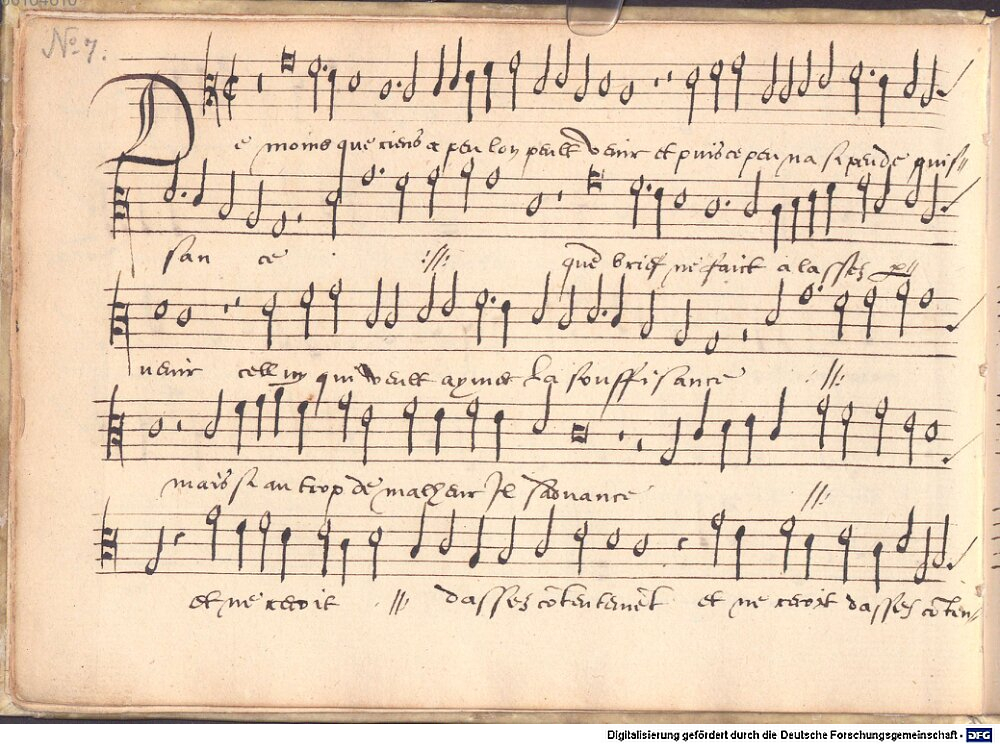 00104010
No 7.
De moins que riens a peu lon peult venir et puis ce peu na si peu de puis//
san ce :://: que brief ne faict a lassez p//
venir celluy qui veult aymer la souffisance ://:
mais si au trop de malheur Il savance ://:
et ne recoit :// dassez cōtentemēt et ne recoit dassez cōten//
Digitalisierung gefördert durch die Deutsche Forschungsgemeinschaft - DFG